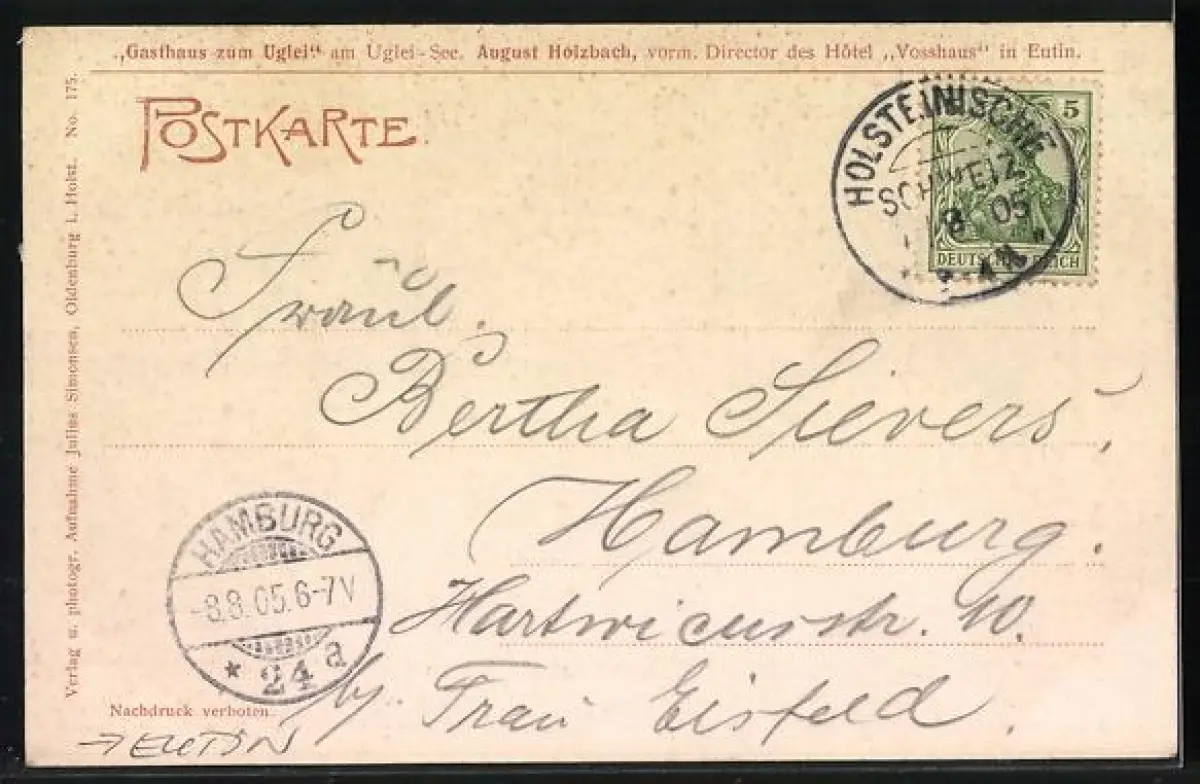 „Gasthaus zum Uglei“ am Uglei-See. August Holzbach, vorm. Director des Hôtel „Vosshaus“ in Eutin.
POSTKARTE
HOLSTEINISCHE
SCHWEIZ
8 05
5
DEUTSCHES REICH
Verlag u. photogr. Aufnahme Julius Simonsen, Oldenburg i. Holst. No. 175.
Fräul.
Bertha Sievers,
Hamburg.
Hartwicusstr. 10.
b/. Frau Eisfeld.
HAMBURG
-8.8.05.6-7V
* 24 a
Nachdruck verboten.